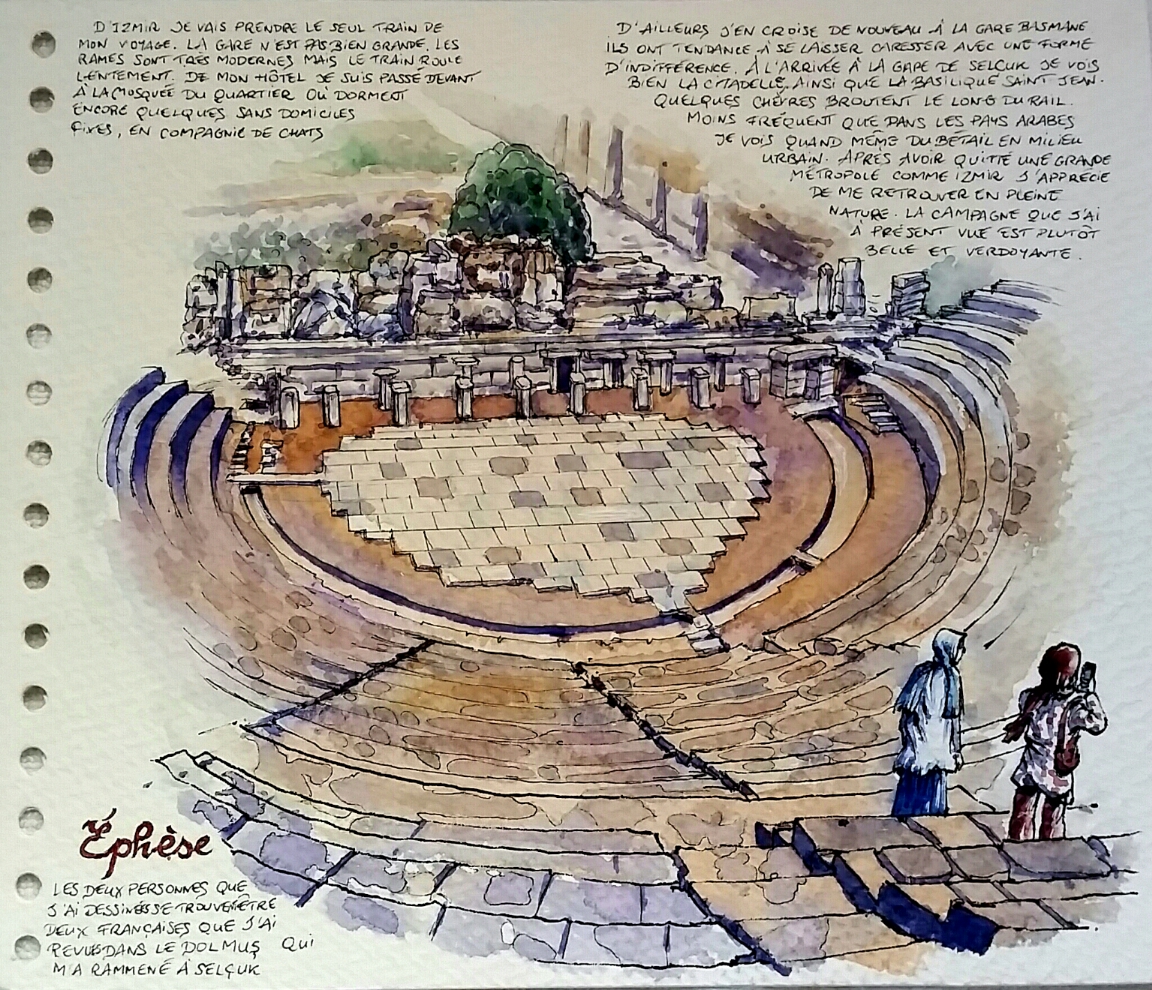 D'IZMIR JE VAIS PRENDRE LE SEUL TRAIN DE
MON VOYAGE. LA GARE N'EST PAS BIEN GRANDE, LES
RAMES SONT TRÈS MODERNES MAIS LE TRAIN ROULE
LENTEMENT. DE MON HÔTEL JE SUIS PASSÉ DEVANT
À LA MOSQUÉE DU QUARTIER OÙ DORMENT
ENCORE QUELQUES SANS DOMICILES
FIXES, EN COMPAGNIE DE CHATS
D'AILLEURS J'EN CROISE DE NOUVEAU À LA GARE BASMANE
ILS ONT TENDANCE À SE LAISSER CARESSER AVEC UNE FORME
D'INDIFFÉRENCE. À L'ARRIVÉE À LA GARE DE SELÇUK JE VOIS
BIEN LA CITADELLE, AINSI QUE LA BASILIQUE SAINT JEAN.
QUELQUES CHÈVRES BROUTENT LE LONG DU RAIL.
MOINS FRÉQUENT QUE DANS LES PAYS ARABES
JE VOIS QUAND MÊME DU BÉTAIL EN MILIEU
URBAIN. APRÈS AVOIR QUITTÉ UNE GRANDE
MÉTROPOLE COMME IZMIR J'APPRÉCIE
DE ME RETROUVER EN PLEINE
NATURE. LA CAMPAGNE QUE J'AI
À PRÉSENT VUE EST PLUTÔT
BELLE ET VERDOYANTE.
Éphèse
LES DEUX PERSONNES QUE
J'AI DESSINÉES SE TROUVENT ÊTRE
DEUX FRANÇAISES QUE J'AI
REVUES DANS LE DOLMUŞ QUI
M'A RAMMENÉ À SELÇUK